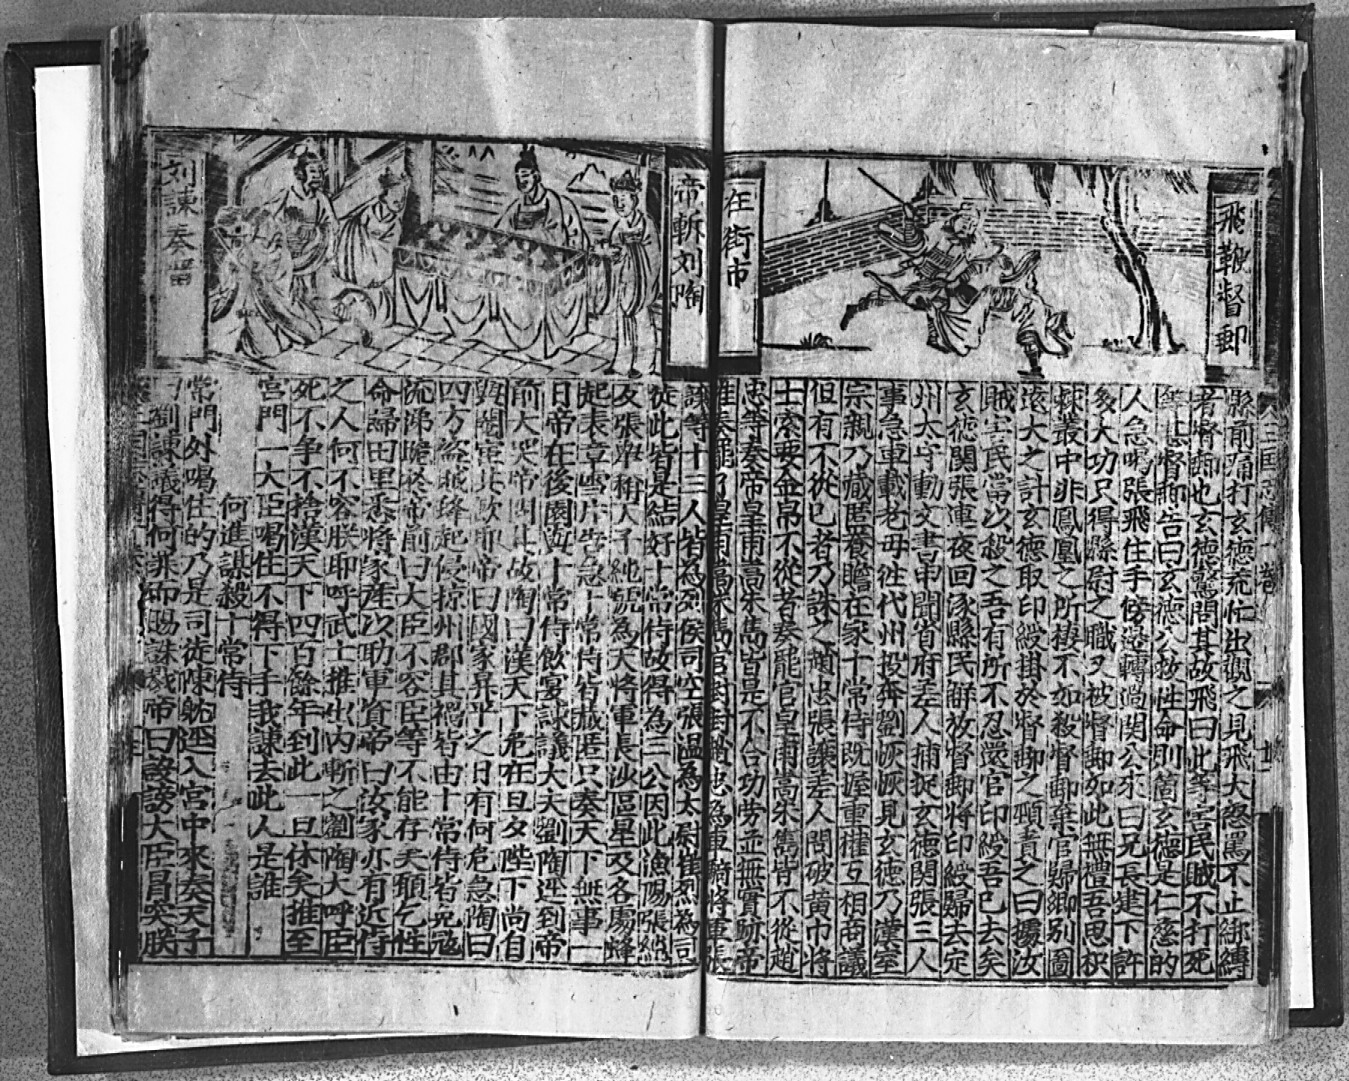 飛鞭督郵
在街市
三国志傳一卷
縣前痛打玄德荒忙出觀之見飛大怒罵不止綁縛
者督郵也玄德驚問其故飛曰此等害民賊不打死
督郵告曰玄德公救性命則箇玄德是仁慈的
人急喝張飛住手傍邊轉過関公來曰兄長建下許
多大功只得縣尉之職又被督郵如此無禮吾思枳
棘叢中非鳳凰之所棲不如殺督郵棄官歸鄉别圖
遠大之計玄德取印綬掛於督郵之頸責之曰據汝
賊害民當以殺之吾有所不忍還官印綬吾已去矣
玄德関張連夜回涿縣民鮮放督郵將印綬歸去定
州太守動文書申聞省府差人捕捉玄德関張三人
事急車載老母往代州投奔劉恢恢見玄德乃漢室
宗親乃藏匿養贍在家十常侍既握重權互相商議
但有不從已者乃誅之趙忠張讓差人問破黄巾將
士索要金帛不從者奏罷官皇甫嵩朱雋皆不從趙
忠等奏帝皇甫嵩朱雋皆是不合功勞並無實跡帝
准奏罷了皇甫嵩朱雋官封趙忠為車騎將軍張
帝斬刘陶
刘諫奏畄
讓等十三人皆為列侯司空張温為太尉崔烈為司
徒此皆是結好十常侍故得為三公因此漁陽張純
反張舉稱天子純號為大將軍長沙區星及各處蜂
起表章雪片告急十常侍皆藏匿只奏天下無事一
日帝在後園與十常侍飲宴諫議大夫劉陶逕到帝
前大哭帝問其故陶曰漢天下危在旦夕陛下尚自
與閹宦共飲耶帝曰國家昇平之日有何危急陶曰
四方盜賊蜂起侵掠州郡其禍皆由十常侍皆免冠
流涕跪於帝前曰大臣不容臣等不能存矣願乞性
命歸田里悉將家産以助軍資帝曰汝家亦有近侍
之人何不容朕耶呼武士推出内斬之劉陶大呼臣
死不争不捨漢天下四百餘年到此一旦休矣推至
宮門一大臣喝住不得下手我諫去此人是誰
何進謀殺十常侍
常門外喝住的乃是司徒陳躭逕入宮中來奏天子
曰劉諫議得何罪而賜誅戮帝曰設謗大臣冒突朕